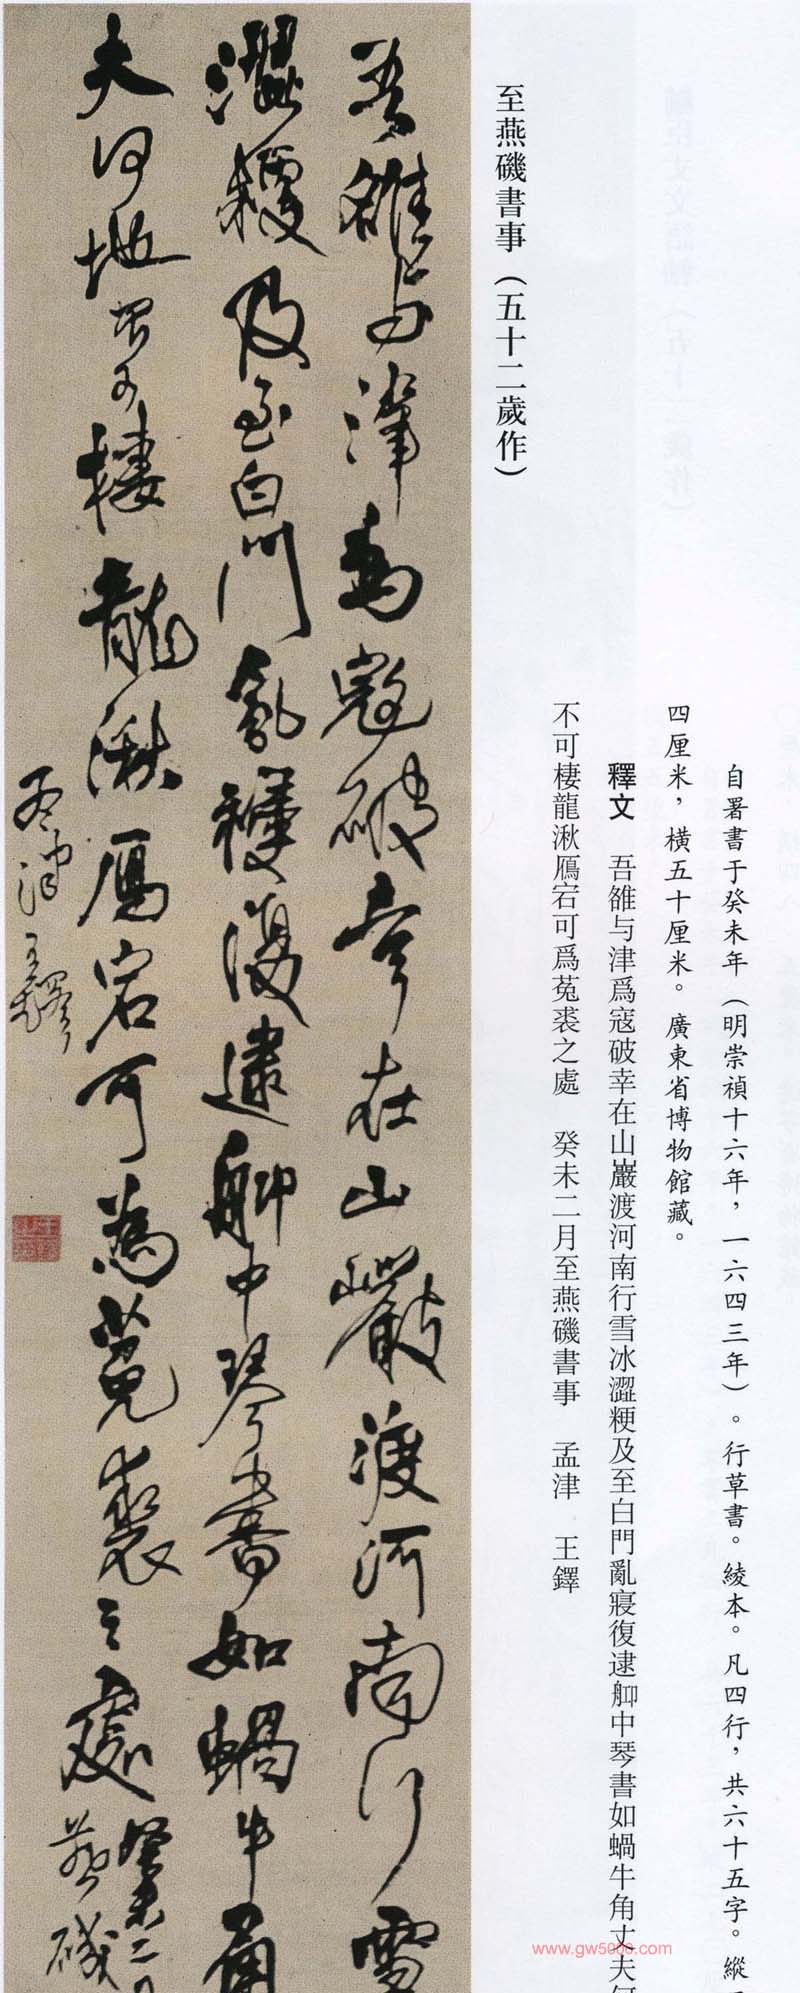 至燕磯書事（五十二歲作）
自署書于癸未年（明崇禎十六年，一六四三年）。行草書。綾本。凡四行，共六十五字。縱
四厘米，橫五十厘米。廣東省博物館藏。
釋文　吾雒与津爲寇破幸在山巖渡河南行雪冰澀粳及至白門亂寢復逮舺中琴書如蝸牛角丈夫何
不可棲龍湫鴈宕可爲菟裘之處　癸未二月至燕磯書事　孟津　王鐸
吾雒与津為寇破幸在山巖渡河南行雪
澀粳及至白門亂寢復逮舺中琴書如蝸牛角
夫何地不可棲龍湫鴈宕可為菟裘之處
癸未二月
燕磯
孟津王鐸
www.gw5000.com